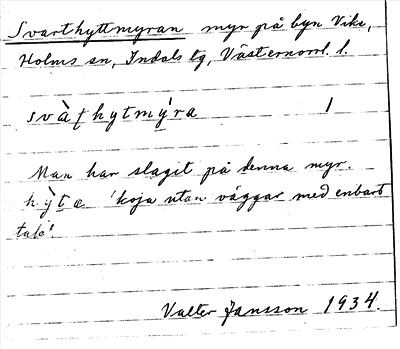 Svarthyttmyran myr på byn Vike,
Holms sn, Indals tg, Västernorrl. l.
svàʈhytmy̍ra 1
Man har slagit på denna myr.
hy̍tæ 'koja utan väggar med enbart
tak'
Valter Jansson 1934.